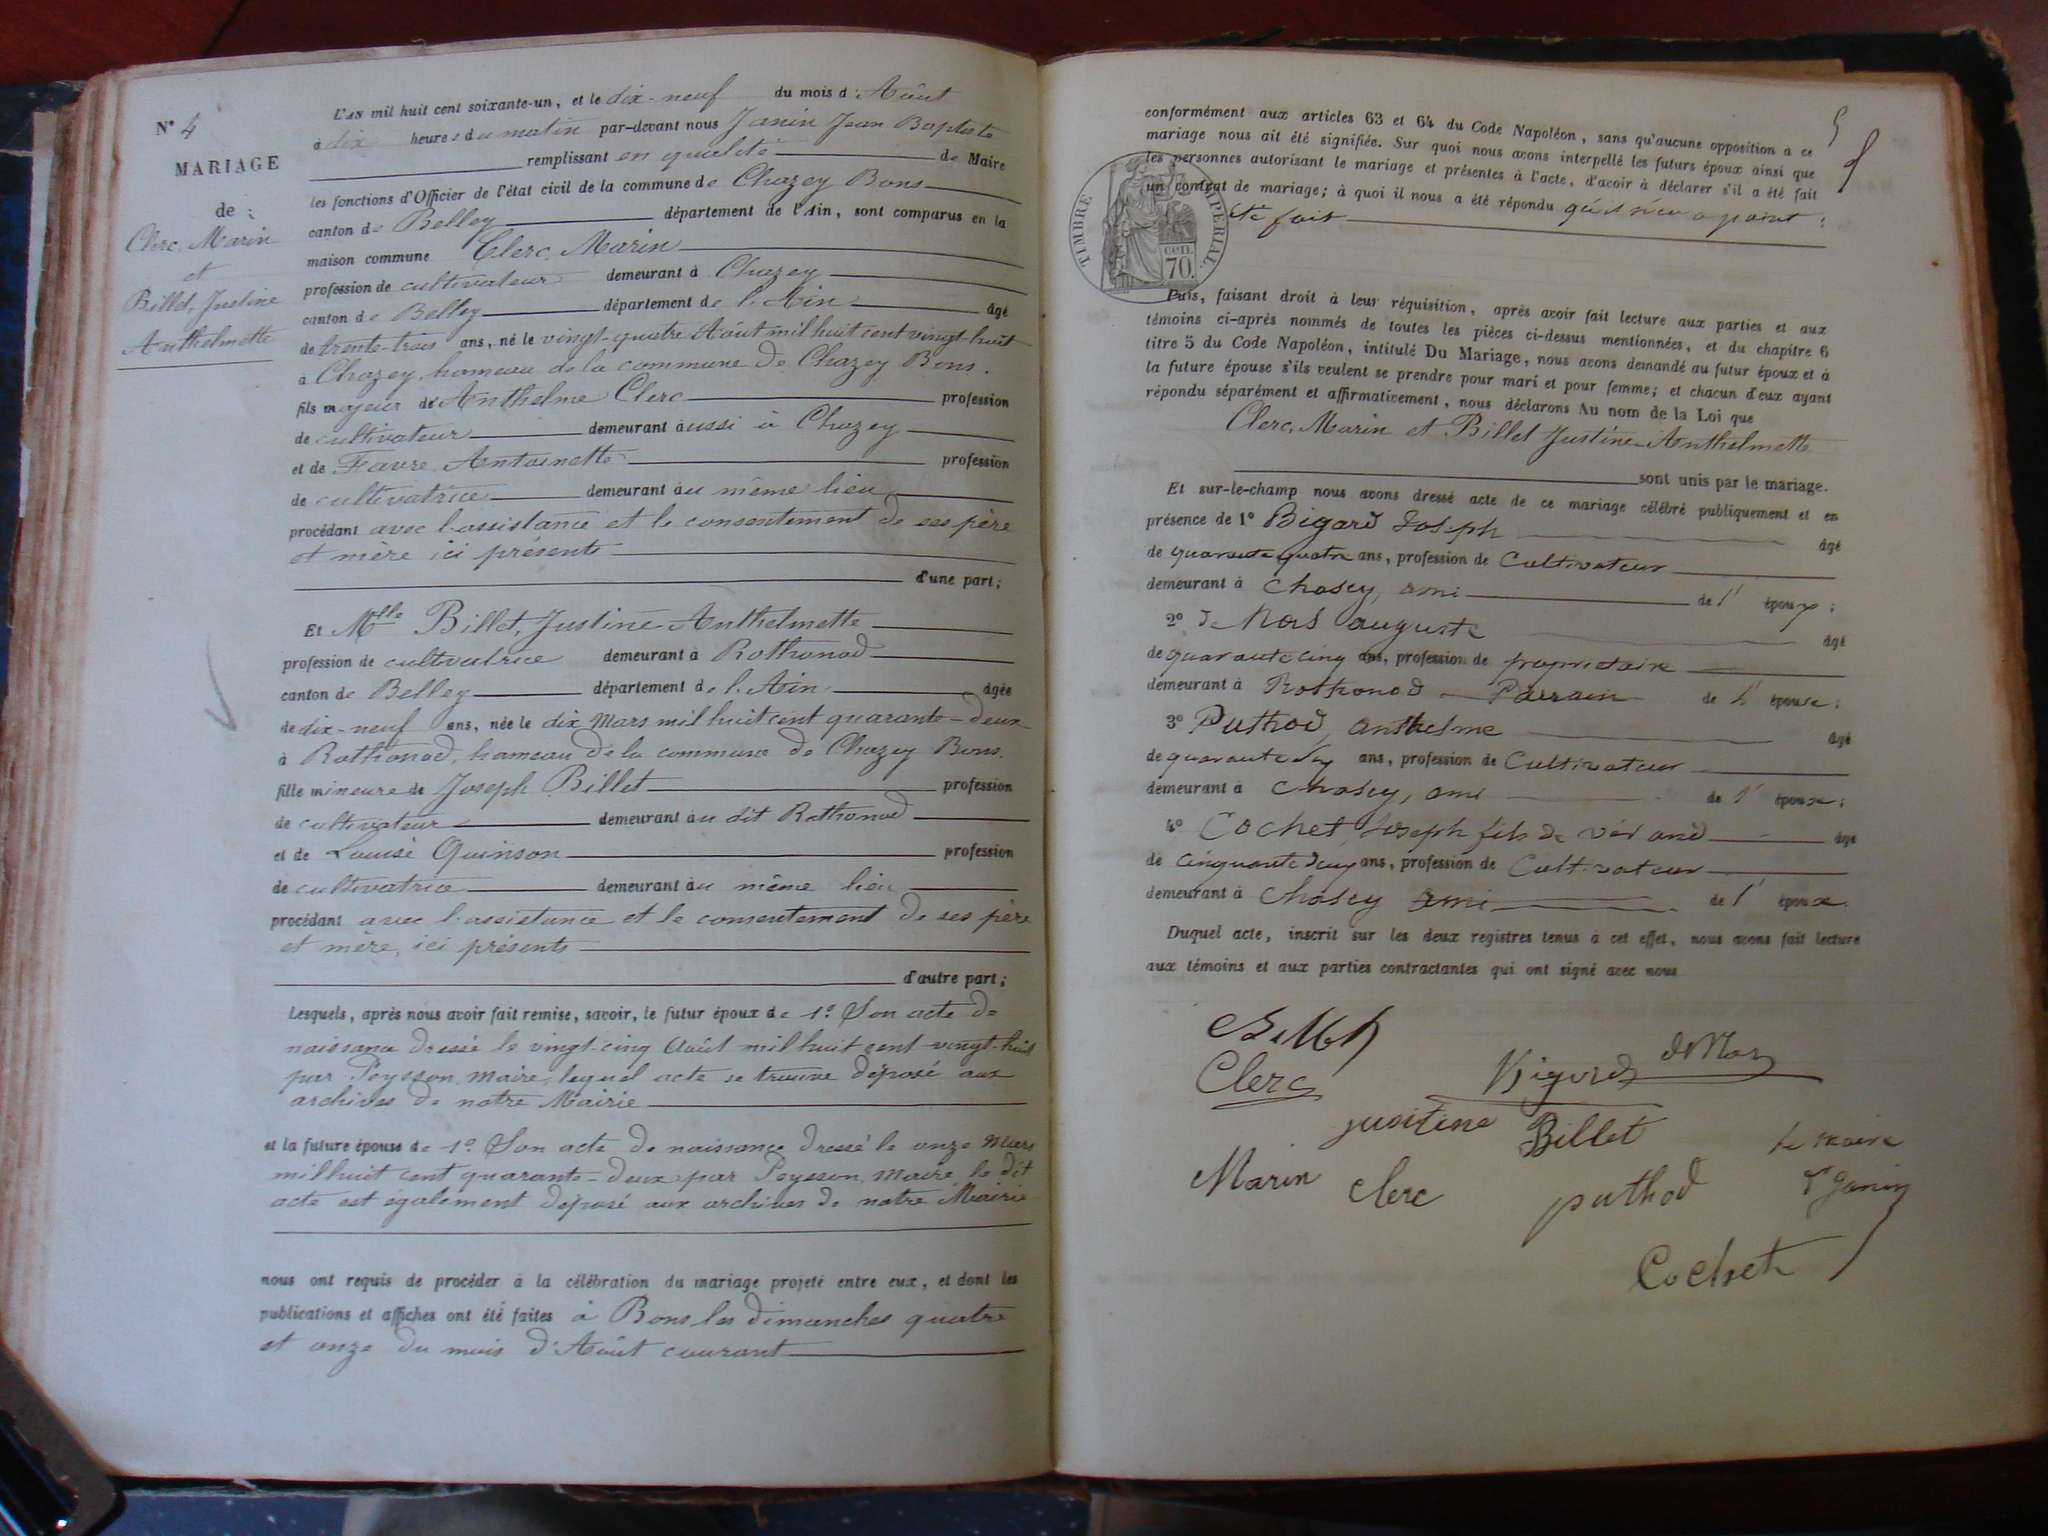 N° 4
MARIAGE
de :
Clerc, Marin
et
Billet, Justine
Anthelmette
L'AN mil huit cent soixante-un, et le dix-neuf du mois d'Août
à dix heures du matin par-devant nous Janin Jean Baptiste
remplissant en qualité de Maire
les fonctions d'Officier de l'état civil de la commune de Chazey Bons
canton de Belley département de l'Ain, sont comparus en la
maison commune Clerc, Marin
profession de cultivateur demeurant à Chazey
canton de Belley département de l'Ain âgé
de trente-trois ans, né le vingt-quatre Août mil huit cent vingt-huit
à Chazey, hameau de la commune de Chazey Bons.
fils majeur de Anthelme Clerc profession
de cultivateur demeurant aussi à Chazey
et de Favre, Antoinette profession
de cultivatrice demeurant au même lieu
procédant avec l'assistance et le consentement de ses père
et mère ici présents
d'une part;
Et Mlle Billet, Justine Anthelmette
profession de cultivatrice demeurant à Rothonod
canton de Belley département de l'Ain âgée
de dix-neuf ans, née le dix Mars mil huit cent quarante-deux
à Rothonod, hameau de la commune de Chazey Bons.
fille mineure de Joseph Billet profession
de cultivateur demeurant au dit Rothonod
et de Louise Quinson profession
de cultivatrice demeurant au même lieu
procédant avec l'assistance et le consentement de ses père
et mère, ici présents
d'autre part;
Lesquels, après nous avoir fait remise, savoir, le futur époux de 1° Son acte de
naissance dressé le vingt-cinq Août mil huit cent vingt-huit
par Peysson, Maire, lequel acte se trouve déposé aux
archives de notre Mairie
et la future épouse de 1° Son acte de naissance dressé le onze Mars
mil huit cent quarante-deux par Peysson, Maire, le dit
acte est également déposé aux archives de notre Mairie
nous ont requis de procéder à la célébration du mariage projeté entre eux, et dont les
publications et affiches ont été faites à Bons les dimanches quatre
et onze du mois d'Août courant
conformément aux articles 63 et 64 du Code Napoléon, sans qu'aucune opposition à ce
mariage nous ait été signifiée. Sur quoi nous avons interpellé les futurs époux ainsi que
les personnes autorisant le mariage et présentes à l'acte, d'avoir à déclarer s'il a été fait
un contrat de mariage; à quoi il nous a été répondu qu'il n'en a point
été fait
TIMBRE IMPERIAL
CEN.
70.
Puis, faisant droit à leur réquisition, après avoir fait lecture aux parties et aux
témoins ci-après nommés de toutes les pièces ci-dessus mentionnées, et du chapitre 6
titre 5 du Code Napoléon, intitulé Du Mariage, nous avons demandé au futur époux et à
la future épouse s'ils veulent se prendre pour mari et pour femme; et chacun d'eux ayant
répondu séparément et affirmativement, nous déclarons Au nom de la Loi que
Clerc, Marin et Billet Justine Anthelmette
sont unis par le mariage.
Et sur-le-champ nous avons dressé acte de ce mariage célébré publiquement et en
présence de 1° Bigard Joseph âgé
de quarante quatre ans, profession de Cultivateur
demeurant à Chasey, ami de l' époux;
2° de Mors auguste âgé
de quarante cinq ans, profession de propriétaire
demeurant à Rothonod Parrain de l' épouse;
3° Puthod, anthelme âgé
de ans, profession de Cultivateur
demeurant à Chasey, ami de l' époux;
4° Cochet, Joseph fils de âgé
de cinquante deux ans, profession de Cultivateur
demeurant à Chasey ami de l' époux.
Duquel acte, inscrit sur les deux registres tenus à cet effet, nous avons fait lecture
aux témoins et aux parties contractantes qui ont signé avec nous
Billet
Clerc Bigard
Justine Billet le maire
Marin Clerc puthod Janin
Cochet